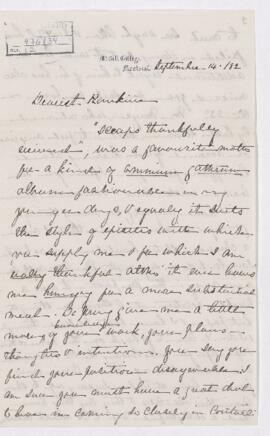 976/24
No. 12
McGill College
Montreal September 14. /92
Dearest Rankine
"scraps thankfully
received", was a favourite motto
for a kind of omnium gatherum
album fashionable in my
younger days, & equally it suits
the style of epistles with which
you supply me & for which I am
really thankful altho' it ever leaves
me hungry for a more substantial
meal. Do pray give me a little
more of your work, your plans
thoughts & intentions. You say you
find your position disagreeable I
am sure you must have a great deal
to bear in coming so closely in contact